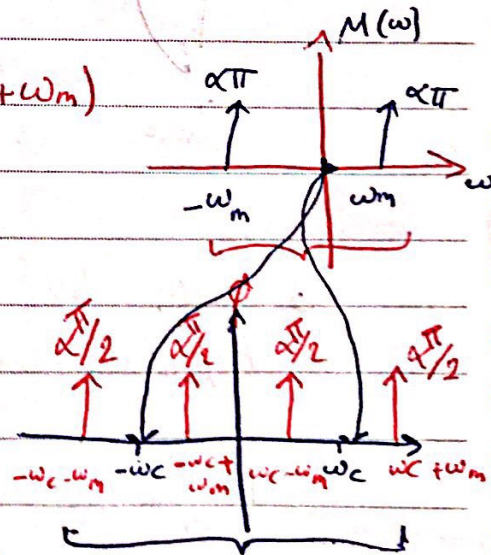 M(ω)
+ωm)
απ απ
-ωm ωm ω
φ
απ/2 απ/2 απ/2 απ/2
-ωc-ωm -ωc -ωc+ωm ωc-ωm ωc ωc+ωm